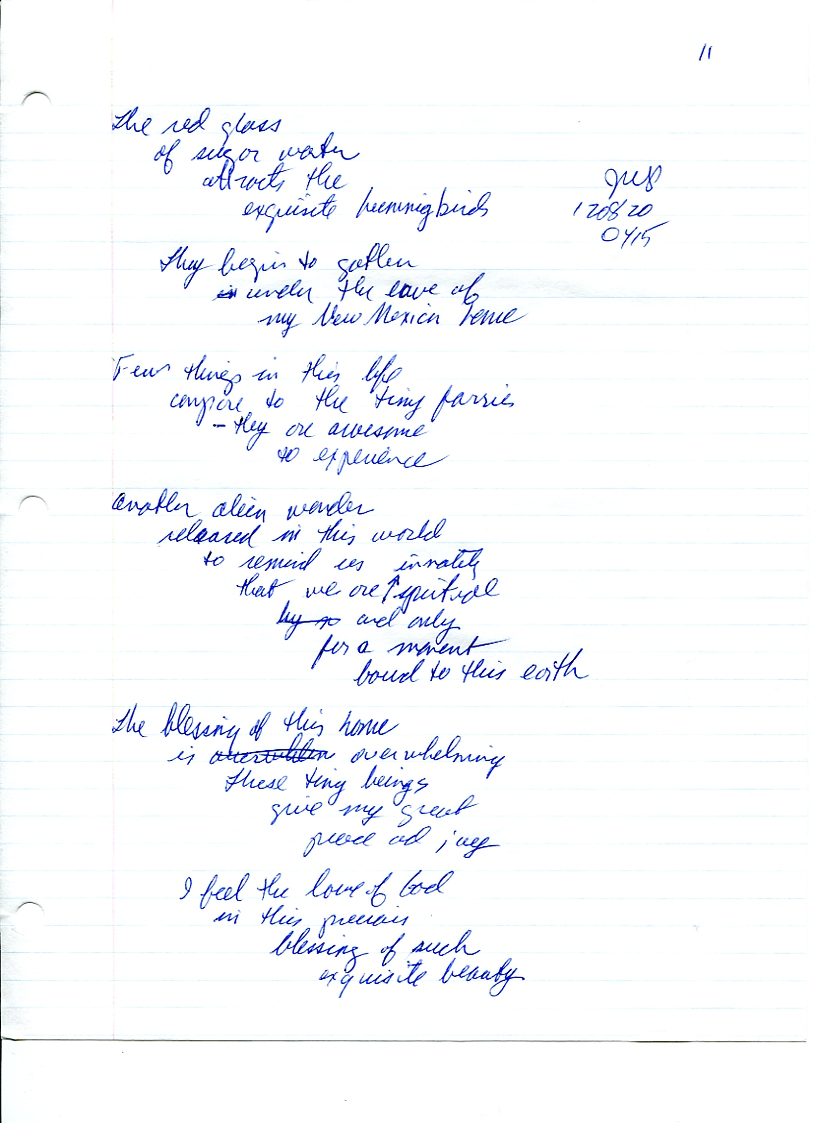 11
The red glass
of sugar water
attracts the
exquisite hummingbirds
120820
0415
They begin to gather
in under the eave of
my New Mexican home
Few things in this life
compare to the tiny farries
- they are awesome
to experience
another alien wonder
released in this world
to remind us innately
that we are spiritual
by and only
for a moment
bound to this earth
The blessing of this home
is overwhelming
these tiny beings
give my great
peace ad joy
I feel the love of God
in this precious
blessing of such
exquisite beauty